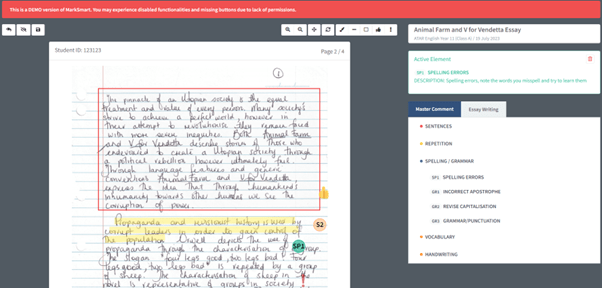 This is a DEMO version of MarkSmart. You may experience disabled functionalities and missing buttons due to lack of permissions.
Animal Farm and V for Vendetta Essay
ATAR English Year 11 (Class A) / 25 July 2023
Student ID: 123123
Page 2 / 4
Active Element
SP1 SPELLING ERRORS
DESCRIPTION: Spelling errors, note the words you misspell and try to learn them
Master Comment
Essay Writing
SENTENCES
REPETITION
SPELLING / GRAMMAR
SP1 SPELLING ERRORS
GR1 INCORRECT APOSTROPHE
GR2 REVISE CAPITALISATION
GR3 GRAMMAR/PUNCTUATION
VOCABULARY
HANDWRITING
1
The pinnacle of an Utopian society is the equal
treatment and value of every person. Many society's
strive to achieve a perfect world, however in
their attempt to revolutionise they remain faced
with more severe inequities. Both Animal Farm
and V for Vendetta describe stories of those who
endeavoured to create a Utopian society through
a political rebellion however ultimately fail.
Through language features and generic
conventions Animal Farm and V for Vendetta,
express the idea that through humankind's
inhumanity towards other humans we see the
corruption of power.
Propaganda and revisionist history is used by
corrupt leaders in order to gain control of
S2
the population. Orwell depicts the use of
propaganda through the characterisation of
SP1
The slogan "four legs good, two legs bad" "four
legs good, two legs bad" is repeated by a group
of sheep. The characterisation of sheep in the
novel is representative of groups in society